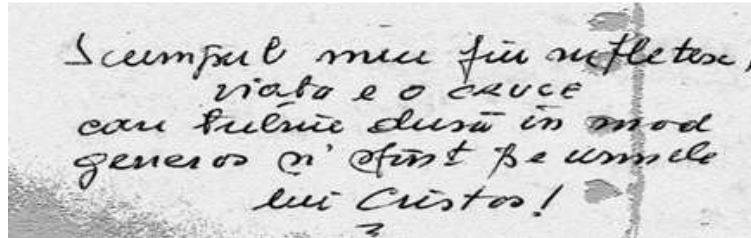 Scumpul meu fiu sufletesc,
viața e o CRUCE
care trebuie dusă în mod
generos și sfînt pe urmele
lui Cristos!